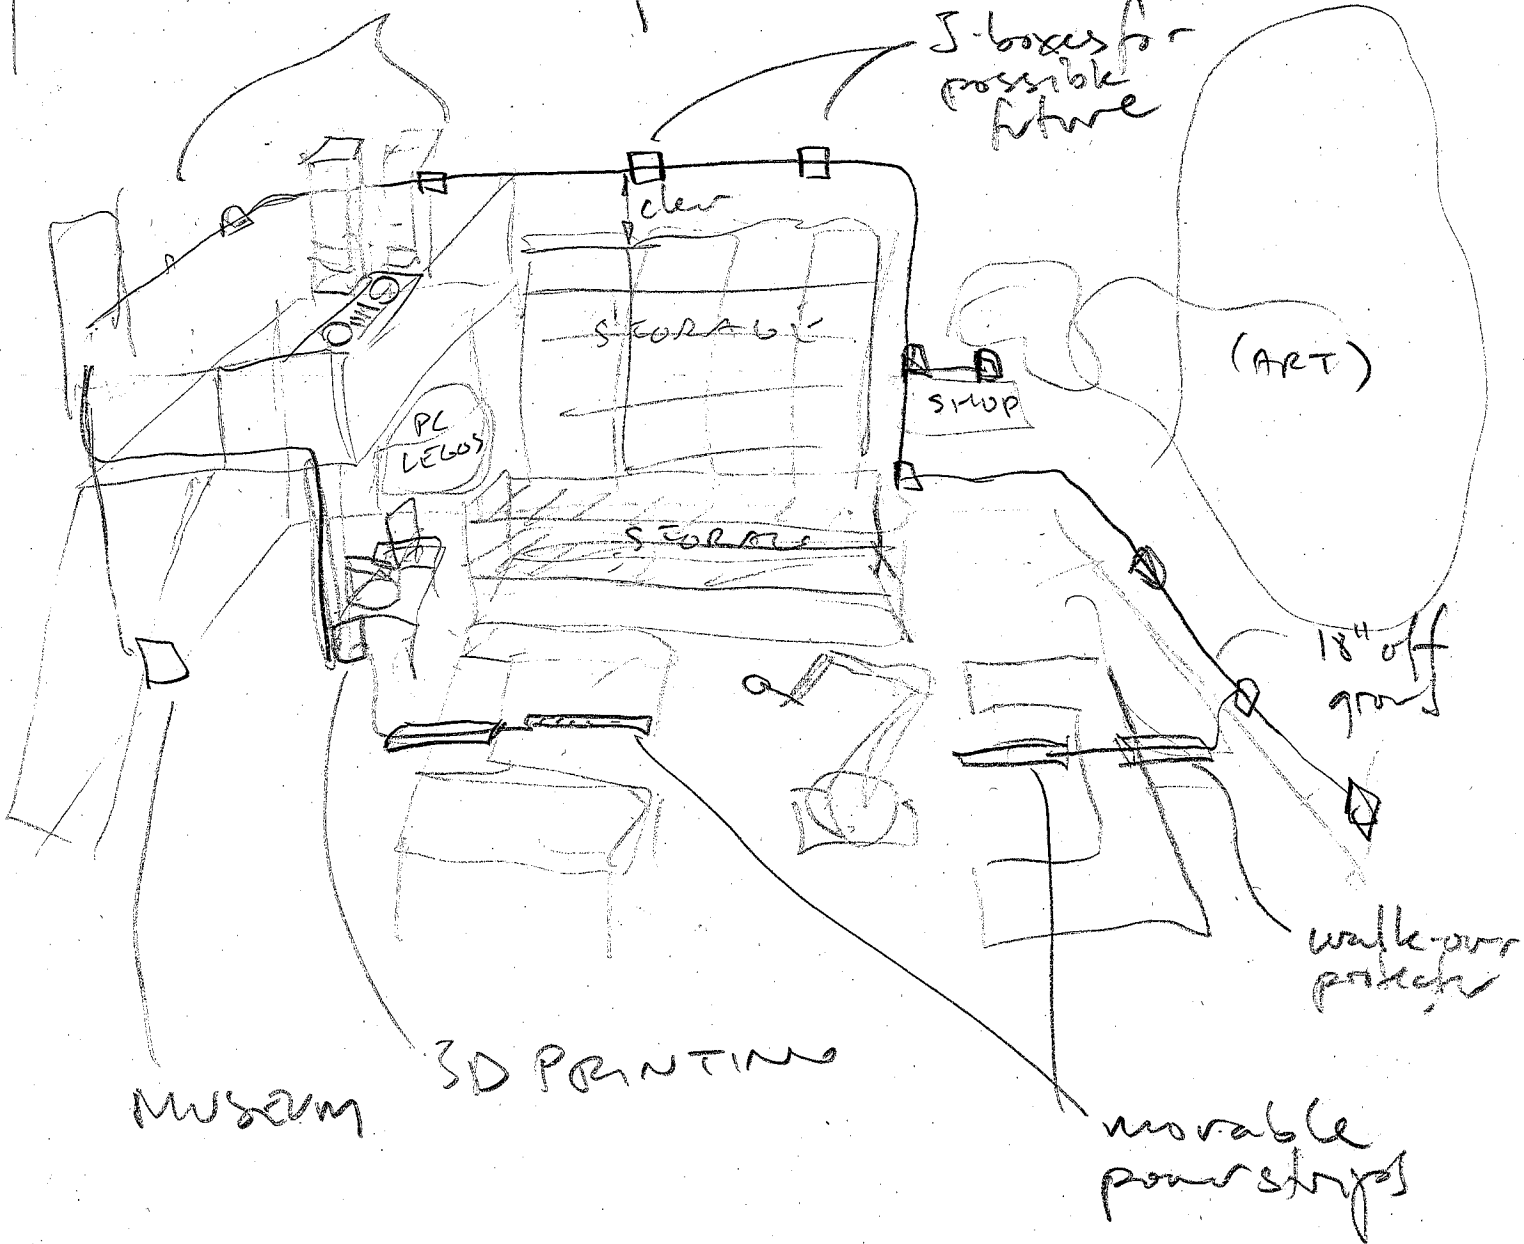 J-boxes for
possible
future
clear
STORAGE
(ART)
SHOP
PC
LEGOS
STORAGE
18" off
ground
walk-over
protector
3D PRINTING
MUSEUM
movable
power strips